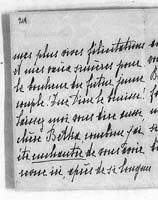 mes plus vives félicitations
et mes vœux sincères pour
le bonheur du futur jeune
couple. Que Dieu le bénisse!
Laissez moi vous dire aussi
chère Betka combien j'ai
été enchantée de vous voir
nous ici, après de si longues